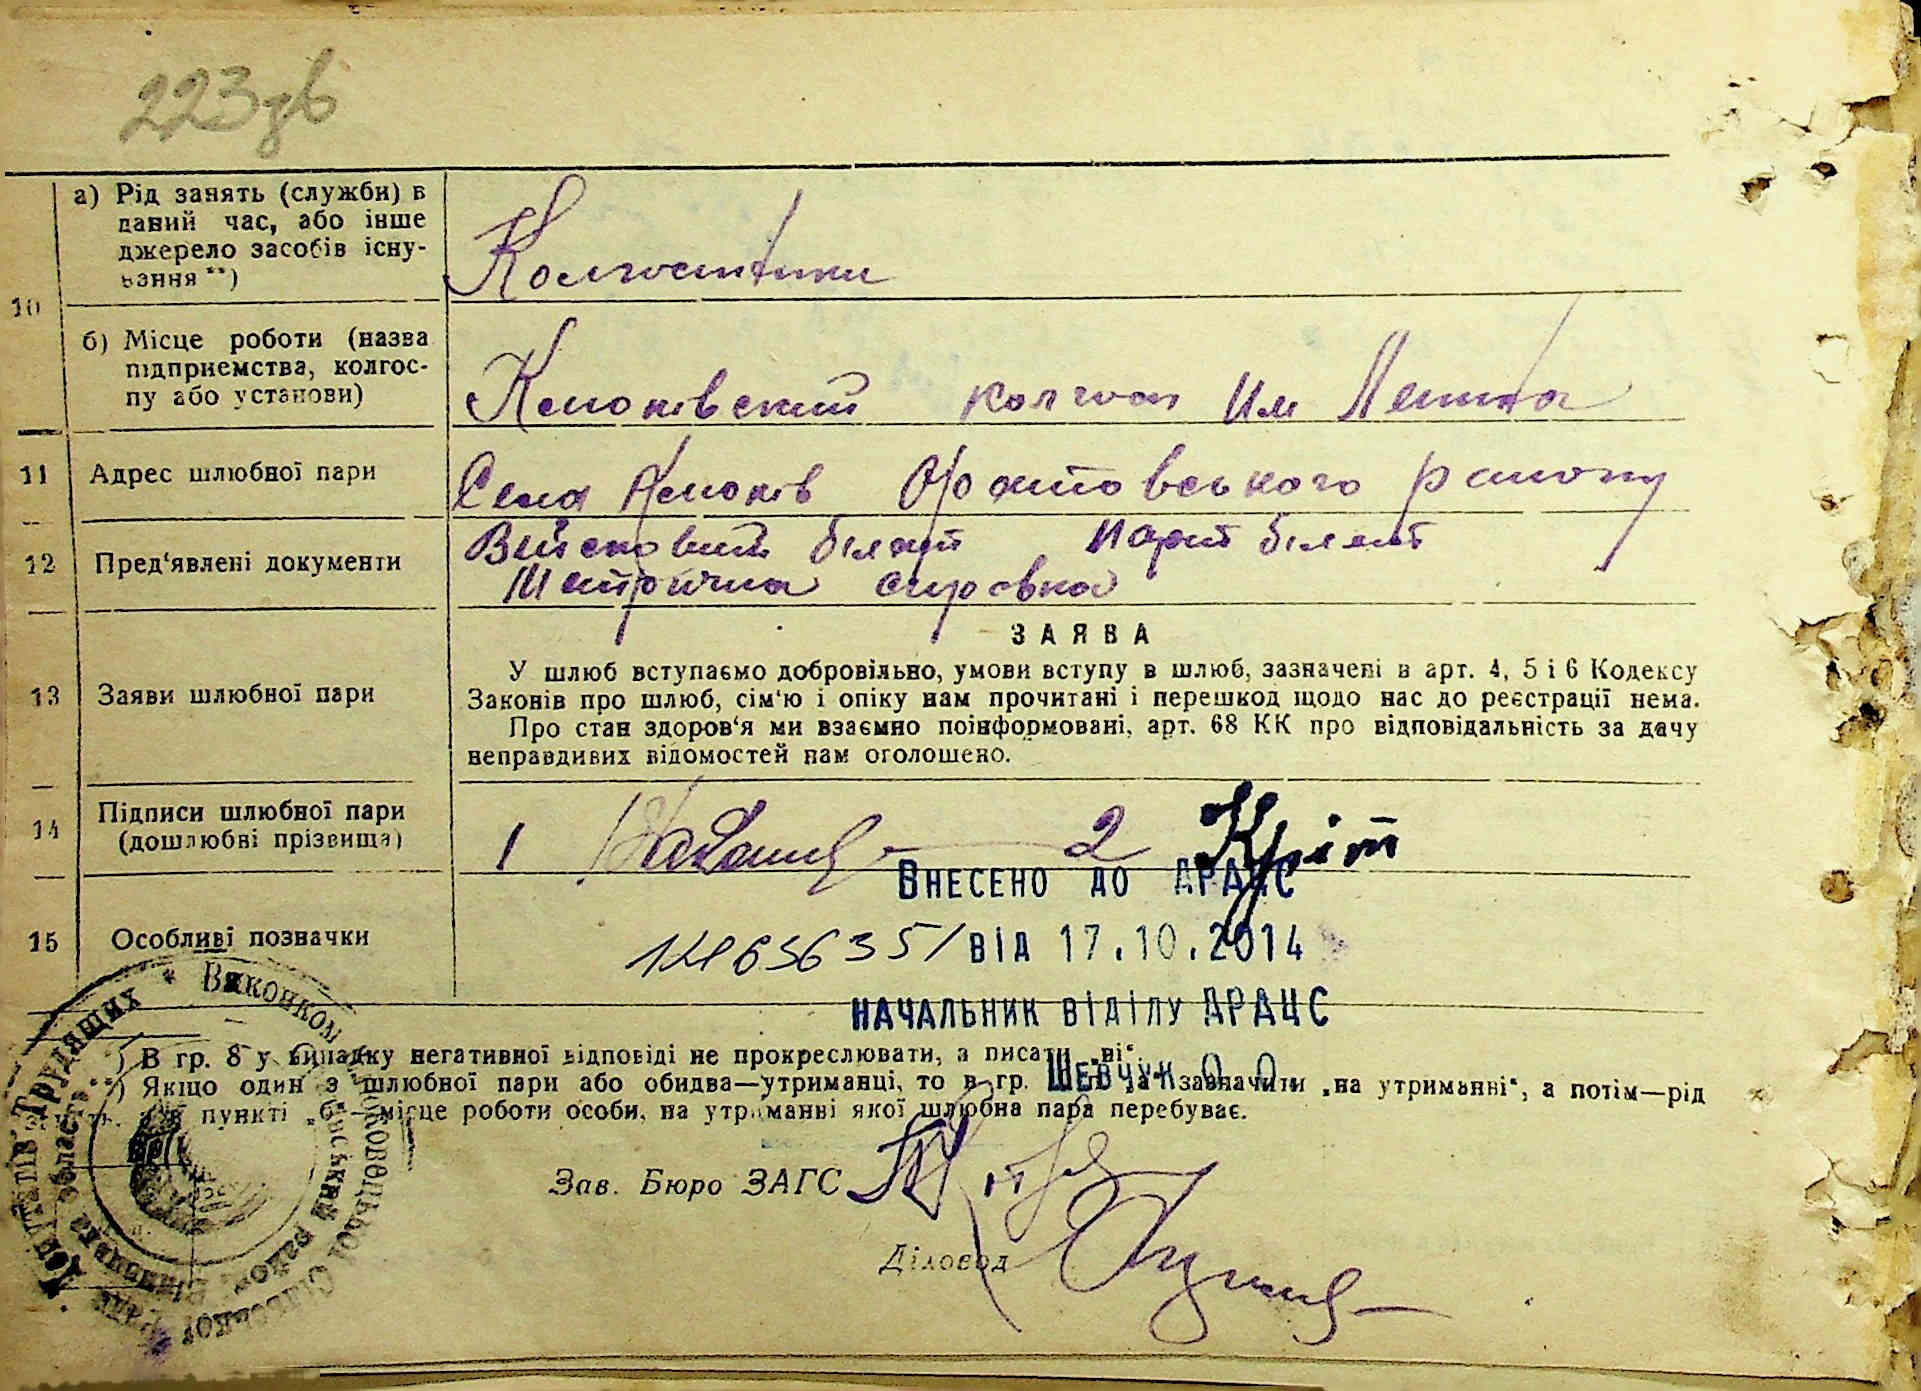 223зв
10
а) Рід занять (служби) в
даний час, або інше
джерело засобів існу-
вання**)
Колгоспники
б) Місце роботи (назва
підприємства, колгос-
пу або установи)
колгосп Им Леніна
11 Адрес шлюбної пари
Села району
12 Пред‘явлені документи
Війсковий білєт парт білєт
Метрична справка
ЗАЯВА
13 Заяви шлюбної пари
У шлюб вступаємо добровільно, умови вступу в шлюб, зазначені в арт. 4, 5 і 6 Кодексу
Законів про шлюб, сім‘ю і опіку нам прочитані і перешкод щодо нас до реєстрації нема.
Про стан здоров‘я ми взаємно поінформовані, арт. 68 КК про відповідальність за дачу
неправдивих відомостей нам оголошено.
14 Підписи шлюбної пари
(дошлюбні прізвища)
1 2
Внесено до ДРАЦС
15 Особливі позначки
від 17.10.2014
НАЧАЛЬНИК ВІДІЛУ ДРАЦС
*) В гр. 8 у випадку негативної відповіді не прокреслювати, а писати „ні“.
Шевчук О.О.
**) Якщо один з шлюбної пари або обидва—утриманці, то в гр. зазначити „на утриманні“, а потім—рід
пункті „б“—місце роботи особи, на утриманні якої шлюбна пара перебуває.
Зав. Бюро ЗАГС
Діловод